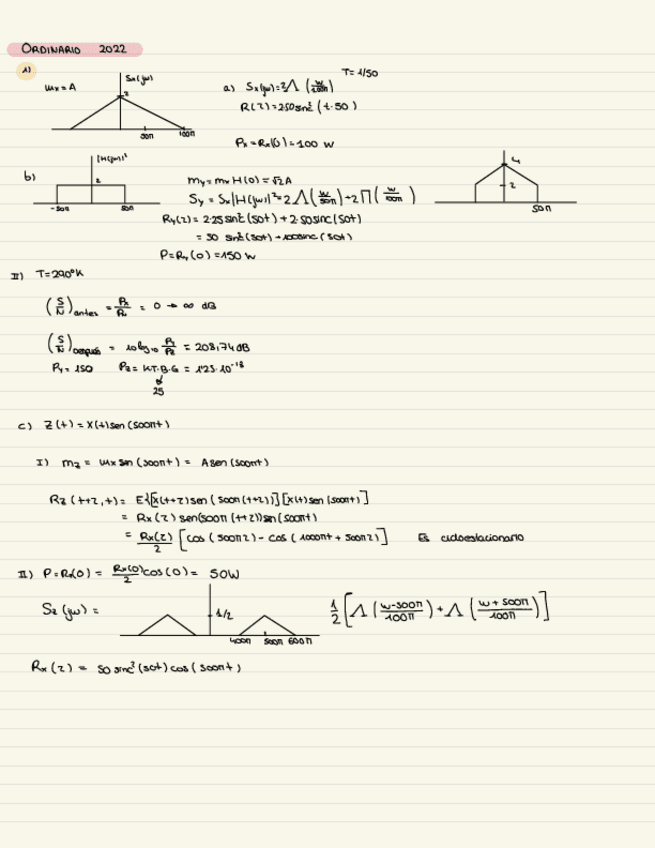 ORDINARIO 2022
1)
mx = A
Sx(jw)
2
50π 100π
a) Sx(jw) = 2Λ (w/100π)
T = 1/50
R(z) = 2·50 sinc² (t·50)
Px = Rx(0) = 100 W
b)
|H(jw)|²
2
-50π 50π
my = mx H(0) = √2 A
Sy = Sx|H(jw)|² = 2 Λ(w/50π) + 2 Π(w/100π)
4
2
50π
Ry(z) = 2·25 sinc²(50t) + 2·50 sinc(50t)
= 50 sinc²(50t) + 100 sinc(50t)
P = Ry(0) = 150 W
II) T = 290°K
(S/N) antes = Px/Pn = 0 → ∞ dB
(S/N) después = 10 log10 P1/P2 = 208,74 dB
Py = 150 P2 = K·T·B·G = 1'25·10⁻¹⁸
25
c) Z(t) = X(t) sen(500πt)
I) mz = mx sin(500πt) = A sen(500πt)
Rz(t+z,t) = E{[x(t+z) sen(500π(t+z))][x(t) sen(500πt)]
= Rx(z) sen(500π(t+z)) sin(500πt)
= Rx(z)/2 [cos(500πz) - cos(1000πt + 500πz)] Es cicloestacionario
II) P = Rz(0) = Rx(0)/2 cos(0) = 50W
Sz(jw) =
1/2
400π 500π 600π
1/2 [Λ (w-500π/100π) + Λ (w+500π/100π)]
Rx(z) = 50 sinc²(50t) cos(500πt)